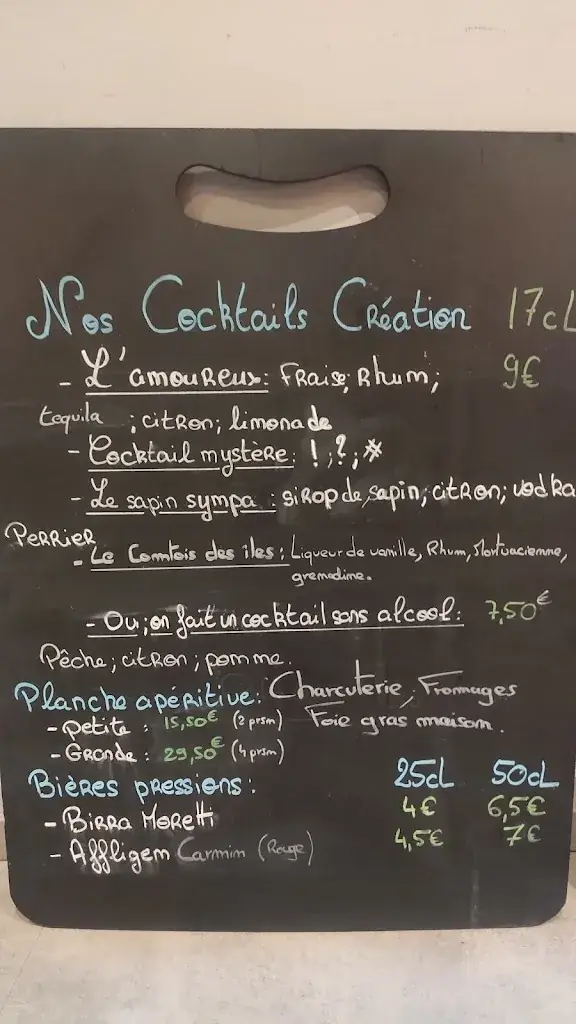 Nos Cocktails Création 17cL
- L'amoureux: Fraise; Rhum; 9€
tequila ; citron; limonade
- Cocktail mystère: !;?;*
- Le sapin sympa : sirop de sapin; citron; vodka
Perrier
- Le Comtois des îles: Liqueur de vanille, Rhum, Mortuacienne,
grenadine.
- Ou; on fait un cocktail sans alcool: 7,50€
Pêche; citron; pomme.
Planche apéritive: Charcuterie, Fromages
- Petite : 15,50€ (2 prsn) Foie gras maison.
- Grande : 29,50€ (4 prsn)
Bières pressions: 25cL 50cL
- Birra Moretti 4€ 6,5€
- Affligem Carmin (Rouge) 4,5€ 7€